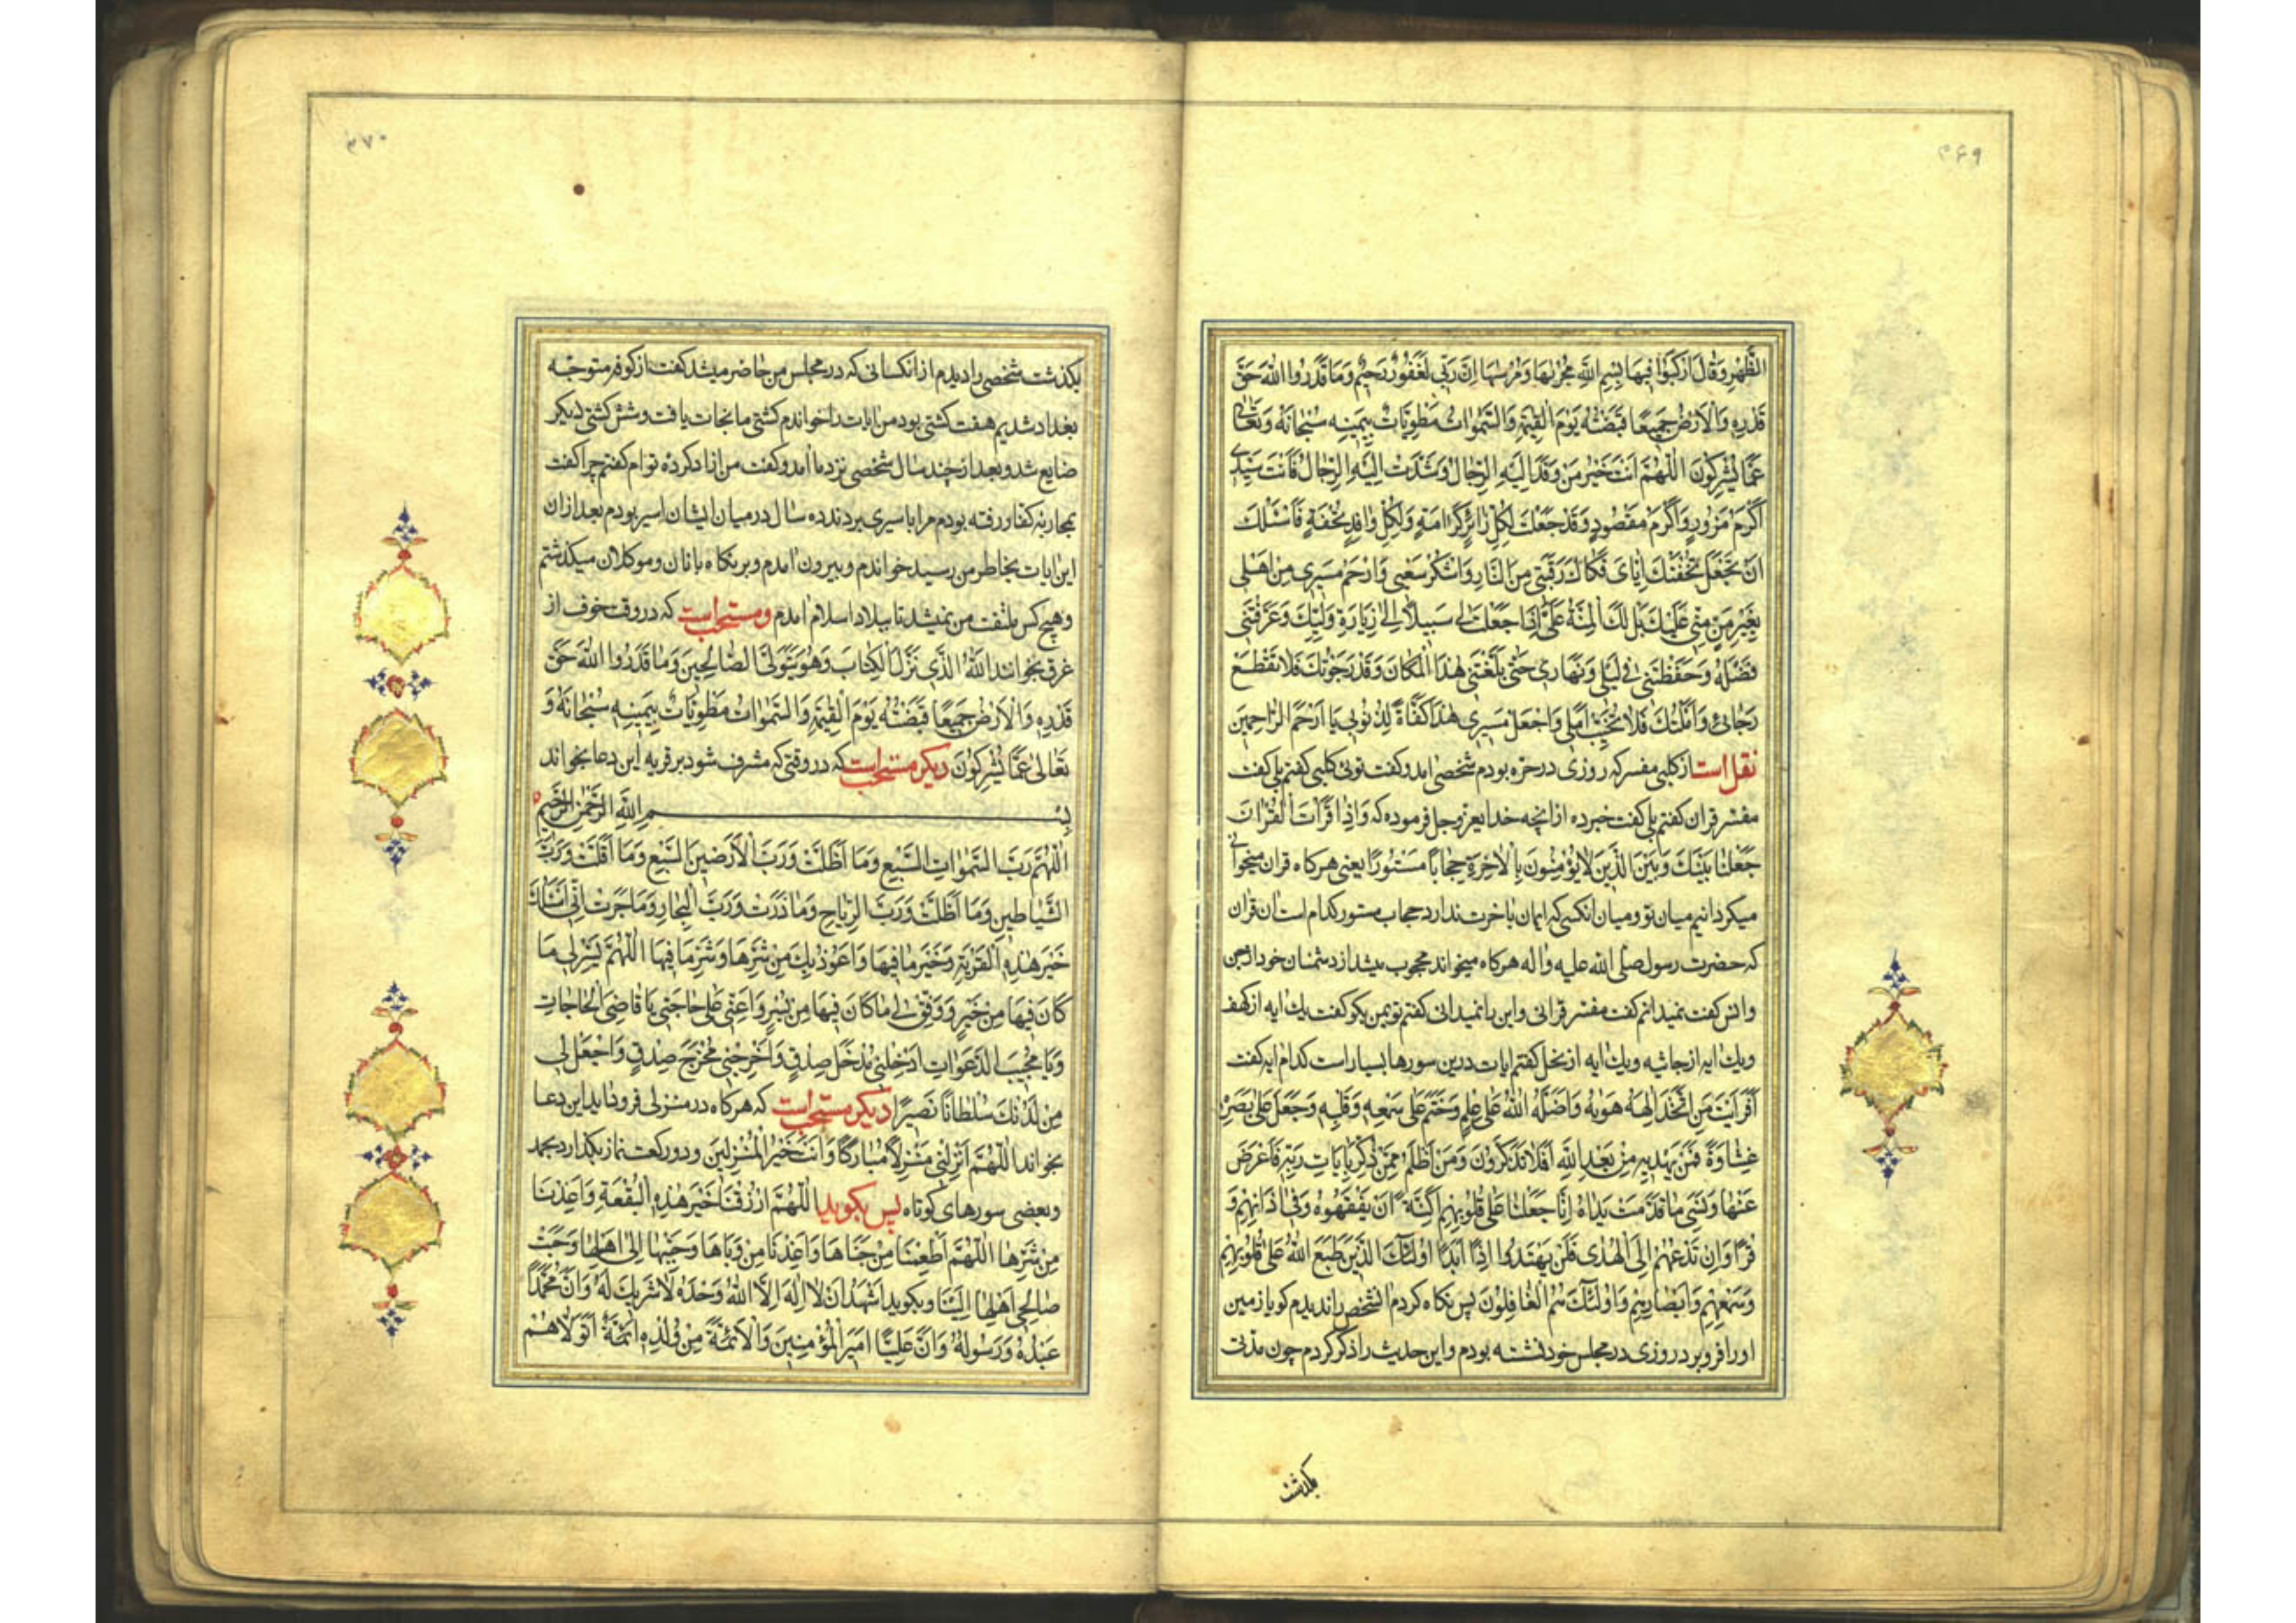 ۳۶۹
الظَّهْرِ وَقَالَ ارْكَبُوا فِيهَا بِسْمِ اللّٰهِ مَجْرٰىهَا وَمُرْسٰىهَا اِنَّ رَبّى لَغَفُورٌ رَحِيمٌ وَمَا قَدَرُوا اللّٰهَ حَقَّ
قَدْرِهِ وَالْاَرْضُ جَمِيعًا قَبْضَتُهُ يَوْمَ الْقِيٰمَةِ وَالسَّمٰوَاتُ مَطْوِيَّاتٌ بِيَمِينِهِ سُبْحَانَهُ وَتَعَالٰى
عَمَّا يُشْرِكُونَ اَللّٰهُمَّ اَنْتَ خَيْرُ مَنْ وَفَدَ اِلَيْهِ الرِّجَالُ وَشُدَّتْ اِلَيْهِ الرِّحَالُ فَاَنْتَ سَيِّدِى
اَكْرَمُ مَزُورٍ وَاَكْرَمُ مَقْصُودٍ وَقَدْ جَعَلْتَ لِكُلِّ زَائِرٍ كَرَامَةً وَلِكُلِّ وَافِدٍ تُحْفَةً فَاَسْئَلُكَ
اَنْ تَجْعَلَ تُحْفَتَكَ اِيَّاىَ فَكَاكَ رَقَبَتِى مِنَ النَّارِ وَاشْكُرْ سَعْيِى وَارْحَمْ مَسِيرِى مِنْ اَهْلِى
بِغَيْرِ مَنٍّ مِنِّى عَلَيْكَ بَلْ لَكَ الْمِنَّةُ عَلَىَّ اِذَا جَعَلْتَ لِى سَبِيلًا اِلٰى زِيَارَةِ وَلِيِّكَ وَعَرَّفْتَنِى
فَضْلَهُ وَحَفِظْتَنِى فِى لَيْلِى وَنَهَارِى حَتّٰى بَلَّغْتَنِى هٰذَا الْمَكَانَ وَقَدْ رَجَوْتُكَ فَلَا تَقْطَعْ
رَجَائِى وَاَمَّلْتُكَ فَلَا تُخَيِّبْ اَمَلِى وَاجْعَلْ مَسِيرِى هٰذَا كَفَّارَةً لِذُنُوبِى يَا اَرْحَمَ الرَّاحِمِينَ
نقل است از كلبى مفسر كه روزى در حيره بودم شخصى امد و كفت توئى كلبى كفتم بلى كفت
مفسّر قران كفتم بلى كفت خبر ده از انچه خداى عز وجل فرموده كه وَاِذَا قَرَأْتَ الْقُرْاٰنَ
جَعَلْنَا بَيْنَكَ وَبَيْنَ الَّذِينَ لَا يُؤْمِنُونَ بِالْاٰخِرَةِ حِجَابًا مَسْتُورًا يعنى هركاه قران ميخوانى
ميكردانيم ميان تو و ميان انكسى كه ايمان باخرت ندارد حجاب مستور كدام است ان قران
كه حضرت رسول صلى الله عليه واله هركاه ميخواند محجوب ميشد از دشمنان خود از جن
وانس كفت نميدانم كفت مفسّر قرانى و اين را نميدانى كفتم تو بمن بكو كفت يك ايه از كهف
و يك ايه از جاثيه و يك ايه از نحل كفتم ايات درين سورها بسيار است كدام ايه كفت
اَفَرَاَيْتَ مَنِ اتَّخَذَ اِلٰهَهُ هَوٰيهُ وَاَضَلَّهُ اللّٰهُ عَلٰى عِلْمٍ وَخَتَمَ عَلٰى سَمْعِهِ وَقَلْبِهِ وَجَعَلَ عَلٰى بَصَرِهِ
غِشَاوَةً فَمَنْ يَهْدِيهِ مِنْ بَعْدِ اللّٰهِ اَفَلَا تَذَكَّرُونَ وَمَنْ اَظْلَمُ مِمَّنْ ذُكِّرَ بِاٰيَاتِ رَبِّهِ فَاَعْرَضَ
عَنْهَا وَنَسِىَ مَا قَدَّمَتْ يَدَاهُ اِنَّا جَعَلْنَا عَلٰى قُلُوبِهِمْ اَكِنَّةً اَنْ يَفْقَهُوهُ وَفِى اٰذَانِهِمْ وَ
قْرًا وَاِنْ تَدْعُهُمْ اِلَى الْهُدٰى فَلَنْ يَهْتَدُوا اِذًا اَبَدًا اُولٰئِكَ الَّذِينَ طَبَعَ اللّٰهُ عَلٰى قُلُوبِهِمْ
وَسَمْعِهِمْ وَاَبْصَارِهِمْ وَاُولٰئِكَ هُمُ الْغَافِلُونَ پس نكاه كردم انشخص را نديدم كويا زمين
او را فرو برد روزى در مجلس خود نشسته بودم و اين حديث را ذكر كردم چون مدتى
بكذشت
۳۷۰
بكذشت شخصى را ديدم از انكسانى كه در مجلس من حاضر ميشد كفت از كوفه متوجه
بغداد شديم هفت كشتى بود من ايات را خواندم كشتى ما نجات يافت و شش كشتى ديكر
ضايع شد و بعد از چند سال شخصى نزد ما امد و كفت من ازاد كرده توام كفتم چرا كفت
بمحاربه كفار رفته بودم مرا باسيرى بردند ده سال در ميان ايشان اسير بودم بعد از ان
اين ايات بخاطر من رسيد خواندم و بيرون امدم و بر نكاهبانان و موكلان ميكذشتم
و هيچ كس ملتفت من نميشد تا ببلاد اسلام امدم و مستحب است كه در وقت خوف از
غرق بخواند اَللّٰهُ الَّذِى نَزَّلَ الْكِتَابَ وَهُوَ يَتَوَلَّى الصَّالِحِينَ وَمَا قَدَرُوا اللّٰهَ حَقَّ
قَدْرِهِ وَالْاَرْضُ جَمِيعًا قَبْضَتُهُ يَوْمَ الْقِيٰمَةِ وَالسَّمٰوَاتُ مَطْوِيَّاتٌ بِيَمِينِهِ سُبْحَانَهُ وَ
تَعَالٰى عَمَّا يُشْرِكُونَ ديكر مستحب است كه در وقتى كه مشرف شود بر قريه اين دعا بخواند
بِسْمِ اللّٰهِ الرَّحْمٰنِ الرَّحِيمِ
اَللّٰهُمَّ رَبَّ السَّمٰوَاتِ السَّبْعِ وَمَا اَظَلَّتْ وَرَبَّ الْاَرَضِينَ السَّبْعِ وَمَا اَقَلَّتْ وَرَبَّ
الشَّيَاطِينِ وَمَا اَظَلَّتْ وَرَبَّ الرِّيَاحِ وَمَا ذَرَتْ وَرَبَّ الْبِحَارِ وَمَا جَرَتْ اِنِّى اَسْئَلُكَ
خَيْرَ هٰذِهِ الْقَرْيَةِ وَخَيْرَ مَا فِيهَا وَاَعُوذُ بِكَ مِنْ شَرِّهَا وَشَرِّ مَا فِيهَا اَللّٰهُمَّ يَسِّرْ لِى مَا
كَانَ فِيهَا مِنْ خَيْرٍ وَوَفِّقْ لِى مَا كَانَ فِيهَا مِنْ يُسْرٍ وَاَعِنِّى عَلٰى حَاجَتِى يَا قَاضِىَ الْحَاجَاتِ
وَيَا مُجِيبَ الدَّعَوَاتِ اَدْخِلْنِى مُدْخَلَ صِدْقٍ وَاَخْرِجْنِى مُخْرَجَ صِدْقٍ وَاجْعَلْ لِى
مِنْ لَدُنْكَ سُلْطَانًا نَصِيرًا ديكر مستحب است كه هركاه در منزلى فرود ايد اين دعا
بخواند اَللّٰهُمَّ اَنْزِلْنِى مُنْزَلًا مُبَارَكًا وَاَنْتَ خَيْرُ الْمُنْزِلِينَ و دو ركعت نماز بكذارد بحمد
و بعضى سورهاى كوتاه پس بكويد اَللّٰهُمَّ ارْزُقْنَا خَيْرَ هٰذِهِ الْبُقْعَةِ وَاَعِذْنَا
مِنْ شَرِّهَا اَللّٰهُمَّ اَطْعِمْنَا مِنْ جَنَاهَا وَاَعِذْنَا مِنْ وَبَاهَا وَحَبِّبْنَا اِلٰى اَهْلِهَا وَحَبِّبْ
صَالِحِى اَهْلِهَا اِلَيْنَا و بكويد اَشْهَدُ اَنْ لَا اِلٰهَ اِلَّا اللّٰهُ وَحْدَهُ لَا شَرِيكَ لَهُ وَاَنَّ مُحَمَّدًا
عَبْدُهُ وَرَسُولُهُ وَاَنَّ عَلِيًّا اَمِيرُ الْمُؤْمِنِينَ وَالْاَئِمَّةَ مِنْ وُلْدِهِ اَئِمَّةٌ اَتَوَلَّاهُمْ